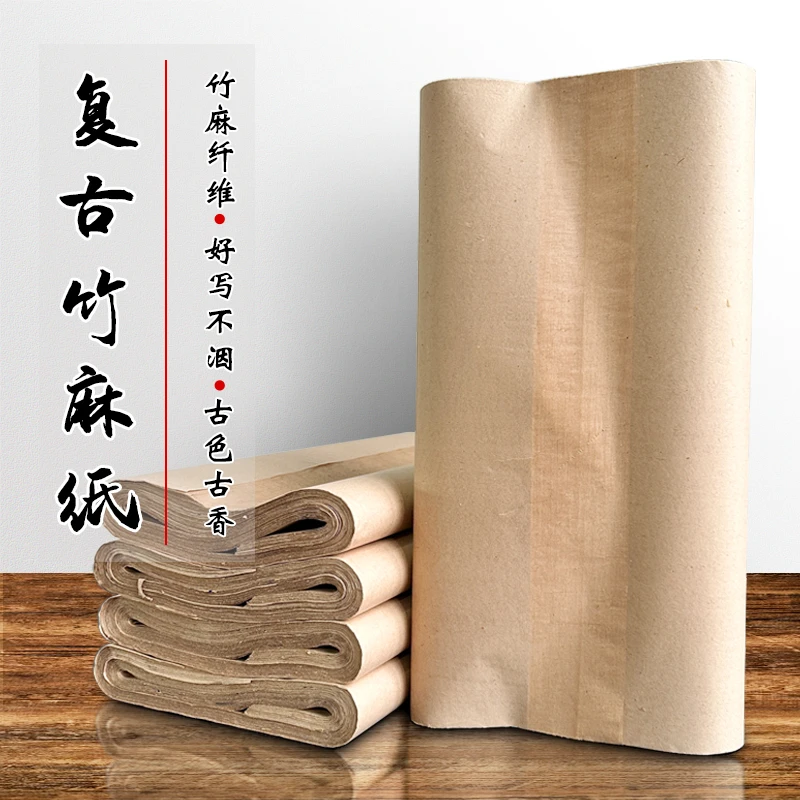 复古竹麻纸
竹麻纤维•好写不洇•古色古香